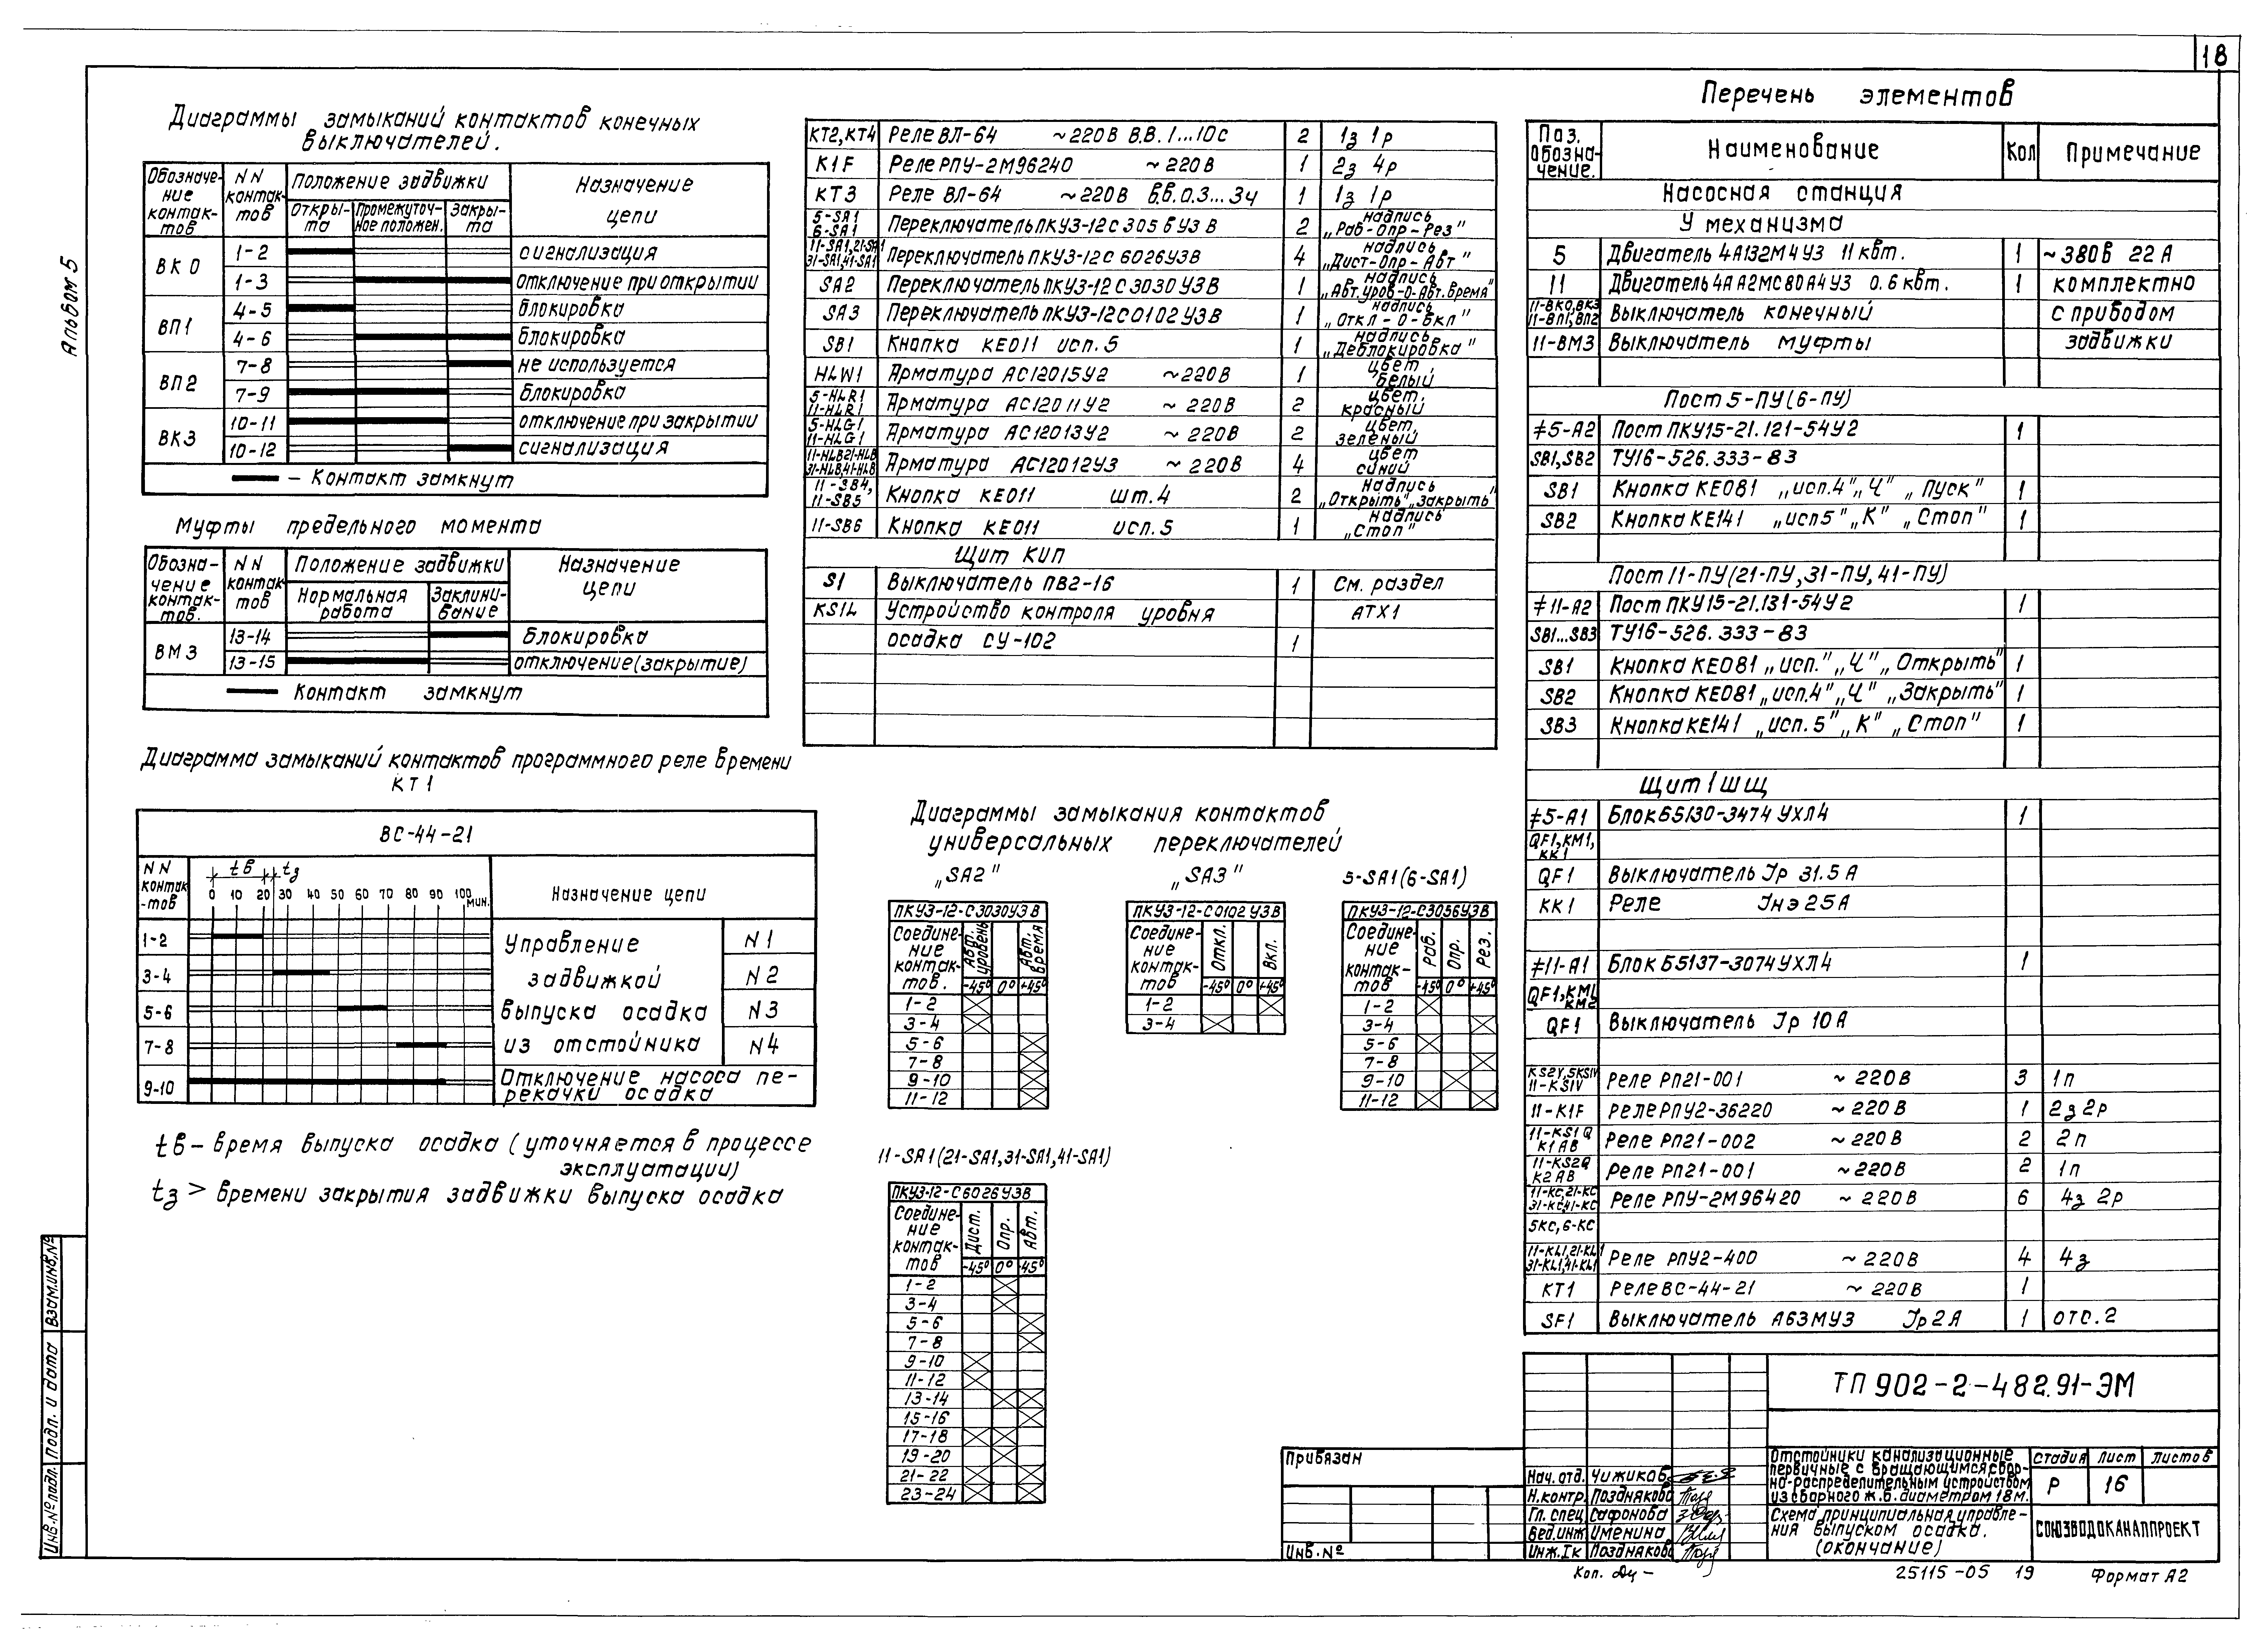 18
Альбом 5
Диаграммы замыканий контактов конечных
выключателей.
Обозначе-
ние
контак-
тов
NN
контак-
тов
Положение задвижки
Откры-
та
Промежуточ-
ное положен.
Закры-
та
Назначение
цепи
ВКО
1-2 сигнализация
1-3 отключение при открытии
ВП1
4-5 блокировка
4-6 блокировка
ВП2
7-8 не используется
7-9 блокировка
ВКЗ
10-11 отключение при закрытии
10-12 сигнализация
– Контакт замкнут
Муфты предельного момента
Обозна-
чение
контак-
тов.
NN
контак-
тов
Положение задвижки
Нормальная
работа
Заклини-
вание
Назначение
цепи
ВМЗ
13-14 блокировка
13-15 отключение (закрытие)
Контакт замкнут
Диаграмма замыканий контактов программного реле времени
КТ1
ВС-44-21
NN
контак
-тов
tв tз
0 10 20 30 40 50 60 70 80 90 100 мин.
Назначение цепи
1-2 Управление N1
3-4 задвижкой N2
5-6 выпуска осадка N3
7-8 из отстойника N4
9-10 Отключение насоса пе-
рекачки осадка
tв – время выпуска осадка (уточняется в процессе
эксплуатации)
tз > времени закрытия задвижки выпуска осадка
КТ2, КТ4 Реле ВЛ-64 ~220В В.В. 1...10с 2 1з 1р
К1F Реле РПУ-2М96240 ~220В 1 2з 4р
КТ3 Реле ВЛ-64 ~220В В.В. 0.3...3ч 1 1з 1р
5-SA1
6-SA1
Переключатель ПКУ3-12С 3056У3В 2 надпись
„Раб-Опр-Рез"
11-SA1,21-SA1
31-SA1,41-SA1
Переключатель ПКУ3-12С 6026У3В 4 надпись
„Дист-Опр-Авт"
SA2 Переключатель ПКУ3-12С3030У3В 1 надпись
„Авт.уров-0-Авт.время"
SA3 Переключатель ПКУ3-12С0102У3В 1 надпись
„Откл-0-Вкл"
SB1 Кнопка КЕ011 исп.5 1 надпись
„Деблокировка"
HLW1 Арматура АС12015У2 ~220В 1 цвет
белый
5-HLR1
11-HLR1
Арматура АС12011У2 ~220В 2 цвет.
красный
5-HLG1
11-HLG1
Арматура АС12013У2 ~220В 2 цвет.
зеленый
11-HLB21-HLB
31-HLB,41-HLB
Арматура АС12012У3 ~220В 4 цвет
синий
11-SB4,
11-SB5
Кнопка КЕ011 шт.4 2 надпись
„Открыть" „Закрыть"
11-SB6 Кнопка КЕ011 исп.5 1 надпись
„Стоп"
Щит КИП
S1 Выключатель ПВ2-16 1 См. раздел
KS1L Устройство контроля уровня АТХ1
осадка СУ-102 1
Диаграммы замыкания контактов
универсальных переключателей
„SA2"
ПКУ3-12-С3030У3В
Соедине-
ние
контак-
тов.
Авт.
уровень
Авт.
время
-45° 0° +45°
1-2
3-4
5-6
7-8
9-10
11-12
„SA3"
ПКУ3-12-С0102У3В
Соедине-
ние
контак-
тов
Откл.
Вкл.
-45° 0° +45°
1-2
3-4
5-SA1(6-SA1)
ПКУ3-12-С3056У3В
Соедине-
ние
контак-
тов
Раб. Опр. Рез.
-45° 0° +45°
1-2
3-4
5-6
7-8
9-10
11-12
11-SA1(21-SA1,31-SA1,41-SA1)
ПКУ3-12-С6026У3В
Соедине-
ние
контак-
тов
Дист. Опр. Авт.
-45° 0° -45°
1-2
3-4
5-6
7-8
9-10
11-12
13-14
15-16
17-18
19-20
21-22
23-24
Перечень элементов
Поз.
Обозна-
чение.
Наименование Кол Примечание
Насосная станция
У механизма
5 Двигатель 4А132М4У3 11 квт. 1 ~380В 22А
11 Двигатель 4АА2МС80А4У3 0.6 квт. 1 комплектно
11-ВКО,ВКЗ
11-ВП1,ВП2
Выключатель конечный с приводом
11-ВМЗ Выключатель муфты задвижки
Пост 5-ПУ(6-ПУ)
≠5-А2 Пост ПКУ15-21.121-54У2 1
SB1,SB2 ТУ16-526.333-83
SB1 Кнопка КЕ081 „исп.4" „Ч" „Пуск" 1
SB2 Кнопка КЕ141 „исп5" „К" „Стоп" 1
Пост 11-ПУ(21-ПУ,31-ПУ,41-ПУ)
≠11-А2 Пост ПКУ15-21.131-54У2 1
SB1...SB3 ТУ16-526.333-83
SB1 Кнопка КЕ081 „исп." „Ч" „Открыть" 1
SB2 Кнопка КЕ081 „исп.4" „Ч" „Закрыть" 1
SB3 Кнопка КЕ141 „исп.5" „К" „Стоп" 1
Щит 1ШЩ
≠5-А1 Блок Б5130-3474УХЛ4 1
QF1,KM1,
KK1
QF1 Выключатель Jр 31.5А
KK1 Реле Jнэ 25А
≠11-А1 Блок Б5137-3074УХЛ4 1
QF1,KM1
KM2
QF1 Выключатель Jр 10А
KS2Y,5KS1V
11-KS1V
Реле РП21-001 ~220В 3 1п
11-К1F Реле РПУ2-36220 ~220В 1 2з 2р
11-KS1Q
К1АВ
Реле РП21-002 ~220В 2 2п
11-KS2Q
К2АВ
Реле РП21-001 ~220В 2 1п
11-КС,21-КС
31-КС,41-КС
Реле РПУ-2М96420 ~220В 6 4з 2р
5КС,6-КС
11-KL1,21-KL1
31-KL1,41-KL1
Реле РПУ2-400 ~220В 4 4з
КТ1 Реле ВС-44-21 ~220В 1
SF1 Выключатель А63МУ3 Jр2А 1 отс.2
ТП 902-2-482.91-ЭМ
Отстойники канализационные
первичные с вращающимся сбор-
на-распределительным устройством
из сборного ж.б. диаметром 18м.
Стадия Лист Листов
Р 16
Схема принципиальная управле-
ния выпуском осадка.
(окончание)
СОЮЗВОДОКАНАЛПРОЕКТ
Нач. отд. Чижиков
Н.контр. Позднякова
Гл. спец. Сафонова
Вед.инж Именина
Инж.Iк Позднякова
Привязан
Инв.№
Взам.инв.№
Подп. и дата
Инв.№ подл.
Коп.
25115-05 19
Формат А2